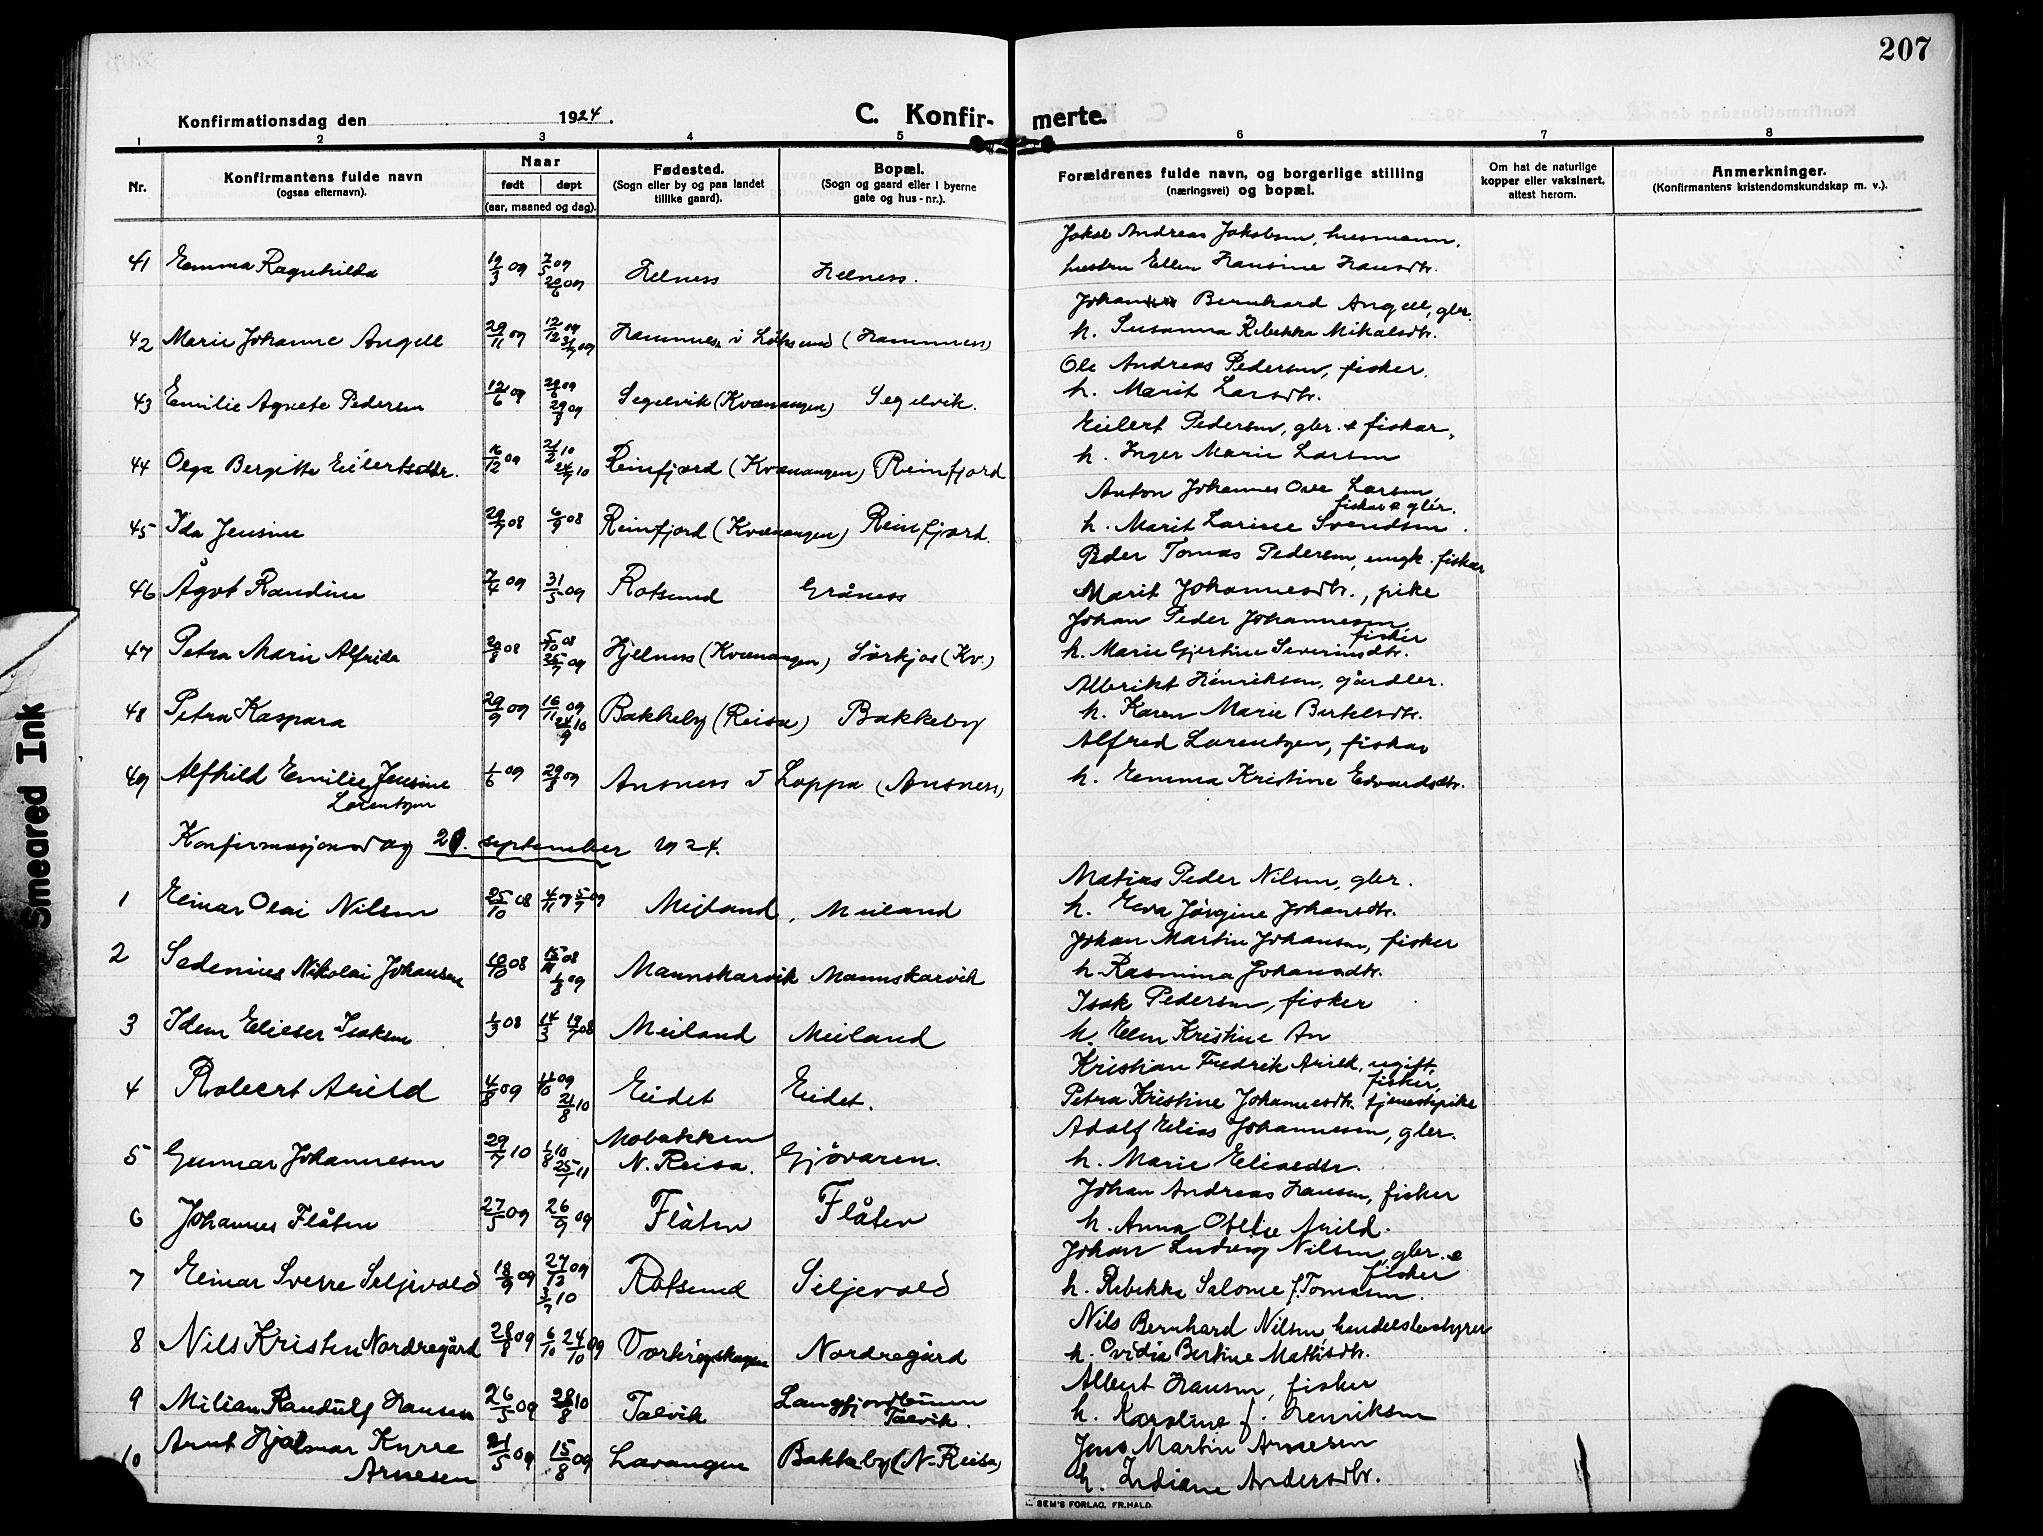 207
Konfirmationsdag den 1924.
C. Konfir- merte.
1 2 3 4 5 6 7 8
Nr. Konfirmantens fulde navn (ogsaa efternavn). Naar født døpt (aar, maaned og dag). Fødested. (Sogn eller by og paa landet tillike gaard). Bopæl. (Sogn og gaard eller i byerne gate og hus-nr.). Forældrenes fulde navn, og borgerlige stilling (næringsvei) og bopæl. Om hat de naturlige kopper eller vaksinert, attest herom. Anmerkninger. (Konfirmantens kristendomskundskap m. v.).
Jakob Andreas Jakobsen, husmann,
41 Emma Ragnhilda 19/3 09 7/5 09 Helness Helness. hustru Ellen Hansine Hansdtr.
20/6 09
Johan Bernhard Angell, gbr.
42 Marie Johanne Angell 29/11 09 12/12 09 Hamness i Löksund (Hamness) h. Susanna Rebekka Mikalsdtr.
Ole Andreas Pedersen, fisker.
43 Emilie Agnete Pedersen 12/6 09 Segelvik (Kvænangen) Segelvik. h. Marit Larsdtr.
29/8 09
Eilert Pedersen, gbr. & fisker,
44 Olga Bergitte Eilertsdtr. 16/12 09 21/2 10 Reinfjord (Kvænangen) Reinfjord h. Inger Marie Larsen
24/7 10
Anton Johannes Ove Larsen
fisker & gbr.
45 Ida Jensine 29/7 08 6/9 08 Reinfjord (Kvænangen) Reinfjord. h. Marit Larine Svendsen.
Peder Tomas Pedersen, ungk. fisker
46 Ågot Randine 7/4 09 31/5 09 Rotsund Gråness Marit Johannesdtr., pike
Johan Peder Johannesen
fisker
47 Petra Marie Alfrida 20/8 08 5/10 08 Hjelness (Kvænangen) Sörkjos (Kv.) h. Marie Gjertine Severinsdtr.
25/7 09
Albrikt Henriksen, gårdbr.
48 Petra Kaspara 29/9 09 16/11 09 Bakkeby (Reisa) Bakkeby h. Karen Marie Bertelsdtr.
24/9 10
Alfred Lorentzen, fisker
49 Alfhild Emilie Jensine 1/6 09 29/8 09 Ansness i Loppa (Ansness) h. Emma Kristine Edvardsdtr.
Lorentzen
Konfirmasjonsdag 21. september 1924.
Matias Peder Nilsen, gbr.
1 Einar Olai Nilsen 25/10 08 4/11 09 5/7 09 Meiland, Meiland h. Eva Jörgine Johansdtr.
Johan Martin Johansen, fisker
2 Sedenius Nikolai Johansen 10/10 08 15/11 08 Mannskarvik Mannskarvik h. Rasmina Johansdtr.
1/8 09
Isak Pedersen, fisker
3 Idem Elieser Isaksen 1/3 08 14/3 19/7 08 Meiland Meiland h. Elen Kristine An
Kristian Fredrik Arild, ugift,
fisker,
4 Robert Arild 4/8 09 11/10 09 Eidet Eidet. Petra Kristine Johannesdtr. tjenestepike
21/8 10
Mobakken Adolf Elias Johannesen, gbr.
5 Gunnar Johannesen 29/7 10 1/8 10 N. Reisa. Gjövaren. h. Marie Eliaedtr.
25/7 11
Johan Andreas Hansen, fisker
6 Johannes Flåten 27/5 09 26/9 09 Flåten Flåten h. Anna Otelie Arild.
Johan Ludvig Nilsen, gbr. &
fisker
7 Einar Sverre Seljevold 18/9 09 27/12 09 Rotsund Seljevold h. Rebekka Salome f. Tomasen.
3/7 10
Nils Bernhard Nilsen, handelsbestyrer
8 Nils Kristen Nordregård 28/8 09 6/10 24/10 09 Nordregård h. Ovidia Bertine Mathisdtr.
Albert Hansen, fisker
9 Milian Randulf Hansen 26/5 09 28/8 10 Talvik Langfjordbunn h. Karoline f. Henriksen
Talvik.
Jens Martin Arnesen
10 Arnt Hjalmar Kyrre 21/5 09 15/8 09 Lavangen Bakkeby (N-Reisa) h. Indiane Andersdtr.
Arnesen
SEM'S FORLAG, FR.HALD.
Smeared Ink